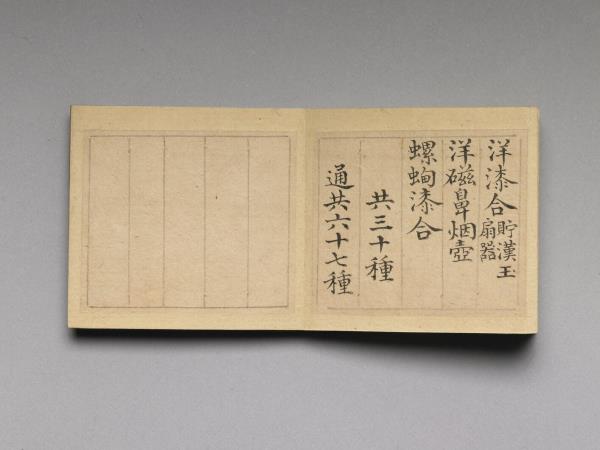 洋漆合貯漢玉扇器
洋磁鼻烟壺
螺蜔漆合
共三十種
通共六十七種